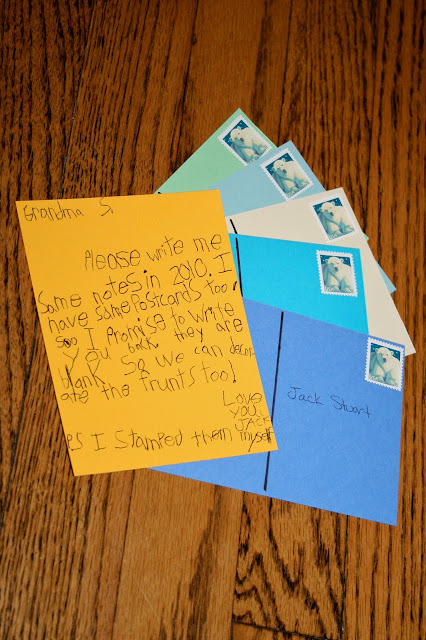 Grandma S.
Please write me
Some notes in 2010. I
have some Postcards too!
soo I Promise to write
you back they are
blank so we can decor-
ate the frunts too!
Love
you,
JACK
PS I Stamped them myself
Jack Stuart